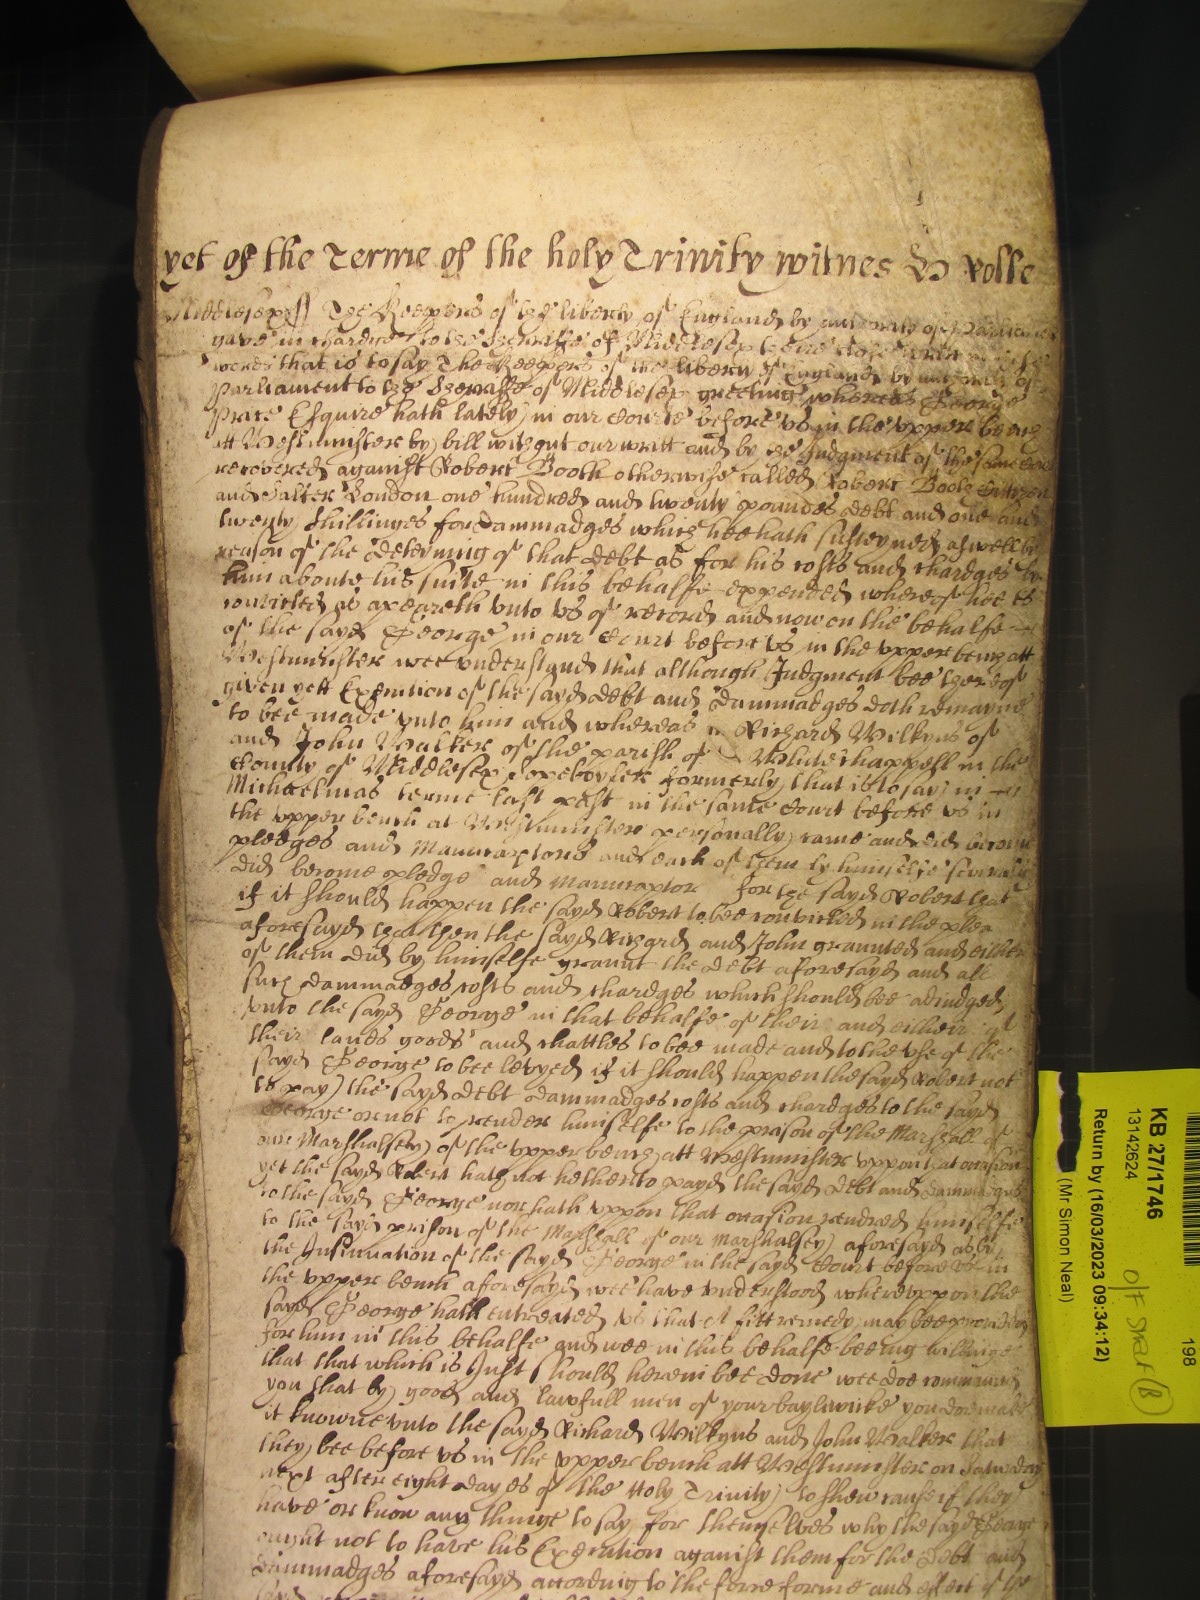 yet of the Terme of the holy Trinity witnes H Rolle
Middlesex ss The Keepers of the liberty of England by authority of Parliament
gave in chardge to the Sherriffe of Middlesex theire close writt in these
words that is to say The Keepers of the liberty of England by authority of
Parliament to the Sherriffe of Middlesex greeting whereas George
Esquire hath lately in our Courte before us in the upper bench
att Westminster by bill without our writt and by the Judgment of the same Court
recovered against Robert Booth otherwise called Robert Booth Cittizen
and Salter London one hundred and twenty poundes debt and one and
twenty shillinges for dammadges which hee hath susteyned aswell by
reason of the deteyning of that debt as for his costs and chardges by
him aboute his suite in this behalfe expended whereof hee is
convicted as appeareth unto us of record and now on the behalfe
of the sayd George in our Court before us in the upper bench att
Westminster wee understand that although Judgment bee thereof
given yett Execution of the sayd debt and dammadges doth remayne
to bee made unto him and whereas Richard Wilkyns of
and John Walker of the parish of Whitechappell in the
County of Middlesex formerly that is to say in
Michaelmas terme last past in the same Court before us in
the upper bench at Westminster personally came and did become
pledges and Manucaptors and each of them by himselfe severally
did become pledge and Manucaptor for the sayd Robert that
if it should happen the sayd Robert to bee convicted in the plea
aforesayd that then the sayd Richard and John graunted and either
of them did by himselfe graunt the debt aforesayd and all
such dammadges costs and chardges which should bee adiudged
unto the sayd George in that behalfe of their and either of
their lands goods and chattles to bee made and to the use of the
sayd George to bee levyed if it should happen the sayd Robert not
to pay the sayd debt dammadges costs and chardges to the sayd
George or not to render himselfe to the prison of the Marshall of
our Marshalsey of the upper bench att Westminster uppon that occasion
yet the sayd Robert hath not hetherto payd the sayd debt and dammadges
to the sayd George nor hath uppon that occasion rendred himselfe
to the sayd prison of the Marshall of our Marshalsey aforesayd as by
the Insinuation of the sayd George in the sayd Court before us in
the upper bench aforesayd wee have understood whereuppon the
sayd George hath entreated us that A fitt remedy may bee provided
for him in this behalfe and wee in this behalfe beeing willinge
that that which is Just should herein bee done wee doe command
you that by good and lawfull men of your baylywicke you doe make
it knowne unto the sayd Richard Wilkyns and John Walker that
they bee before us in the upper bench att Westminster on Saturday
next after eight dayes of the Holy Trinity to shew cause if they
have or know any thinge to say for themselves why the sayd George
ought not to have his Execution against them for the debt and
dammadges aforesayd according to the force forme and effect of the
KB 27/1746
13142624
Return by (16/03/2023 09:34:12)
(Mr Simon Neal)
198